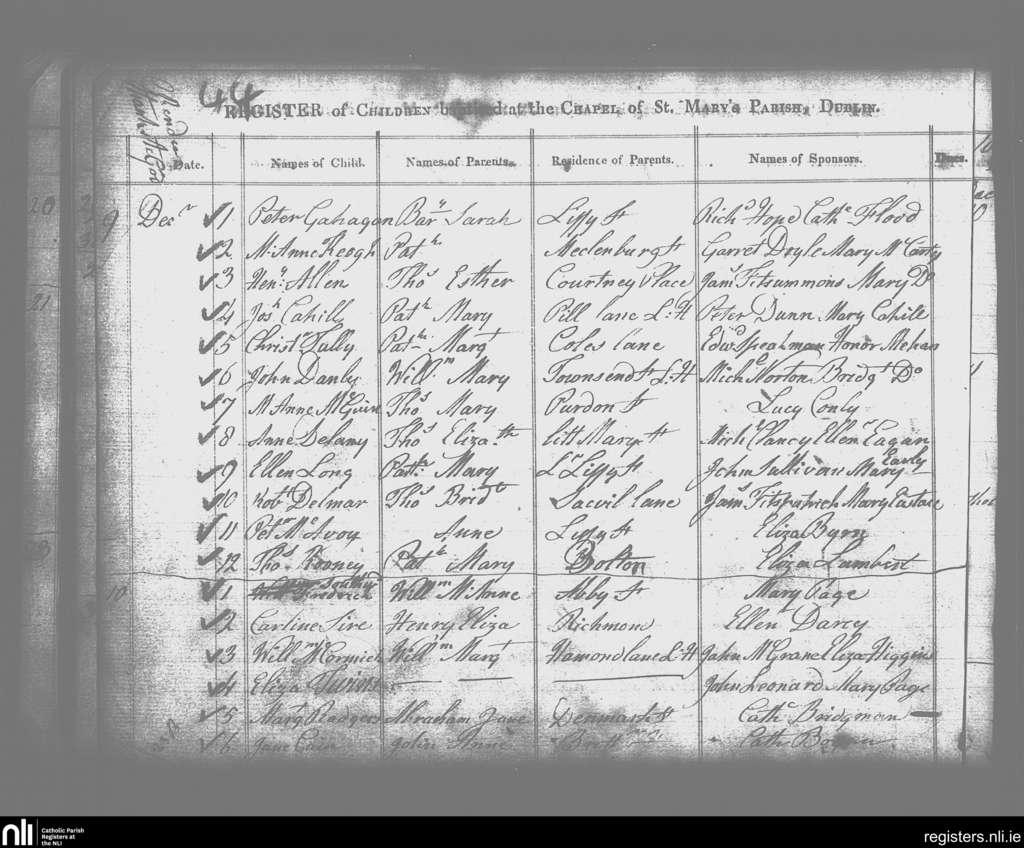 44
REGISTER of CHILDREN baptized at the CHAPEL of St. MARY'S PARISH, DUBLIN.
Date. Names of Child. Names of Parents. Residence of Parents. Names of Sponsors. Dues.
9 Decr 1 Peter Gahagan Barw Sarah Liffy St Richd Hope Cathe Flood
2 M: Anne Keogh Patk Meclenburg St Garret Doyle Mary Mc Carty
3 Heny Allen Thos Esther Courtney Place Jams Fitsummons Mary Do
4 Josh Cahill Patk Mary Pill lane L:H Peter Dunn Mary Cahill
5 Christr Tully Patk Margt Coles lane Edwd Speakman Honor Mehan
6 John Danly Willm Mary Townsend St L:H Michl Norton Bridgt Do
7 M Anne McGuin Thos Mary Purdon St Lucy Conly
8 Anne Delamy Thos Elizath litt Mary St Michl Clancy Ellenr Eagan
9 Ellen Long Patk Mary Lr Liffy St John Sullivan Mary Early
10 Robt Delmar Thos Bridt Sacvil lane Jams Fitspatrick Mary Eustace
11 Petr McAvoy Anne Liffy St Eliza Byrn
12 Thos Rooney Patk Mary Bolton Eliza Lambert
10 1 Fredrick Willm M: Anne Abby St Mary Page
2 Carline Sire Henry Eliza Richmon Ellen Darcy
3 Willm McCormick Willm Margt Hamond lane L:H John McGrane Eliza Higgins
4 Eliza Twins John Leonard Mary Page
5 Margt Rodgers Abraham Jane Denmark St Cathe Bridgman
6 Jane Cain John Anne Cath
nli Catholic Parish
Registers at
the NLI
registers.nli.ie